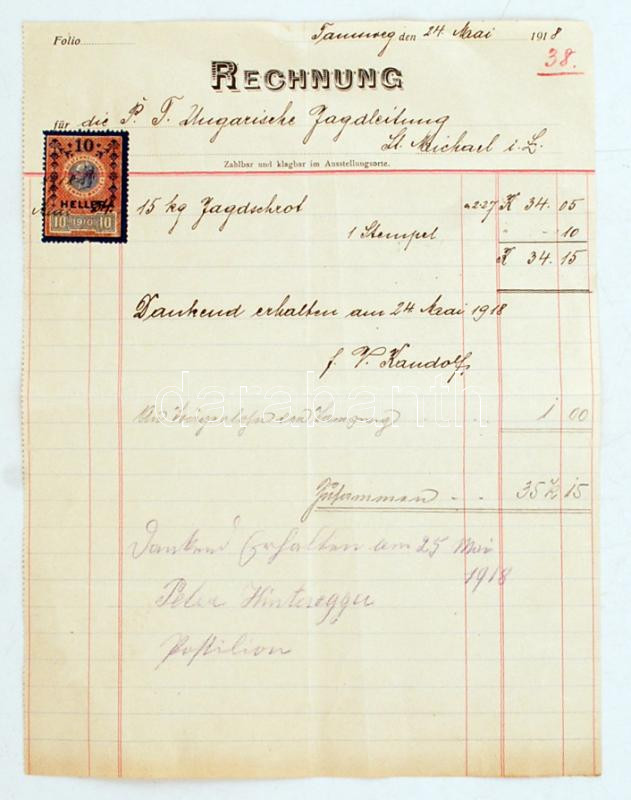 Folio
Tamsweg den 24 Mai 1918
38.
RECHNUNG
für die P. T. Ungarische Jagdleitung
St. Michael i. L.
Zahlbar und klagbar im Ausstellungsorte.
10
HELLER
10 1910 10
Mai 24. 15 kg Jagdschrot a 2·27 K 34.05
1 Stempel " - .10
K 34.15
Dankend erhalten am 24 Mai 1918
f. V. Kandolf
darabanth
1 00
Zusammen - - 35 K 15
Dankend Erhalten am 25 Mai
1918
Peter Hinteregger
Postilion